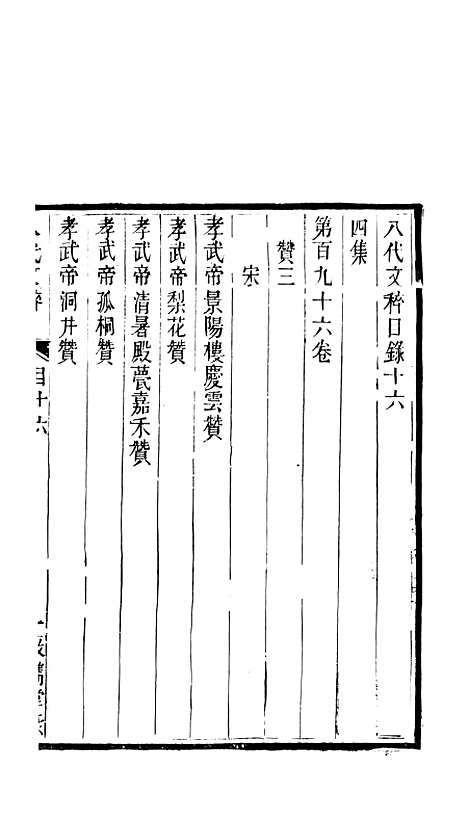 八代文粹目錄十六
四集
第百九十六卷
贊三
宋
孝武帝景陽樓慶雲贊
孝武帝梨花贊
孝武帝清暑殿甍嘉禾贊
孝武帝孤桐贊
孝武帝洞井贊
目十六